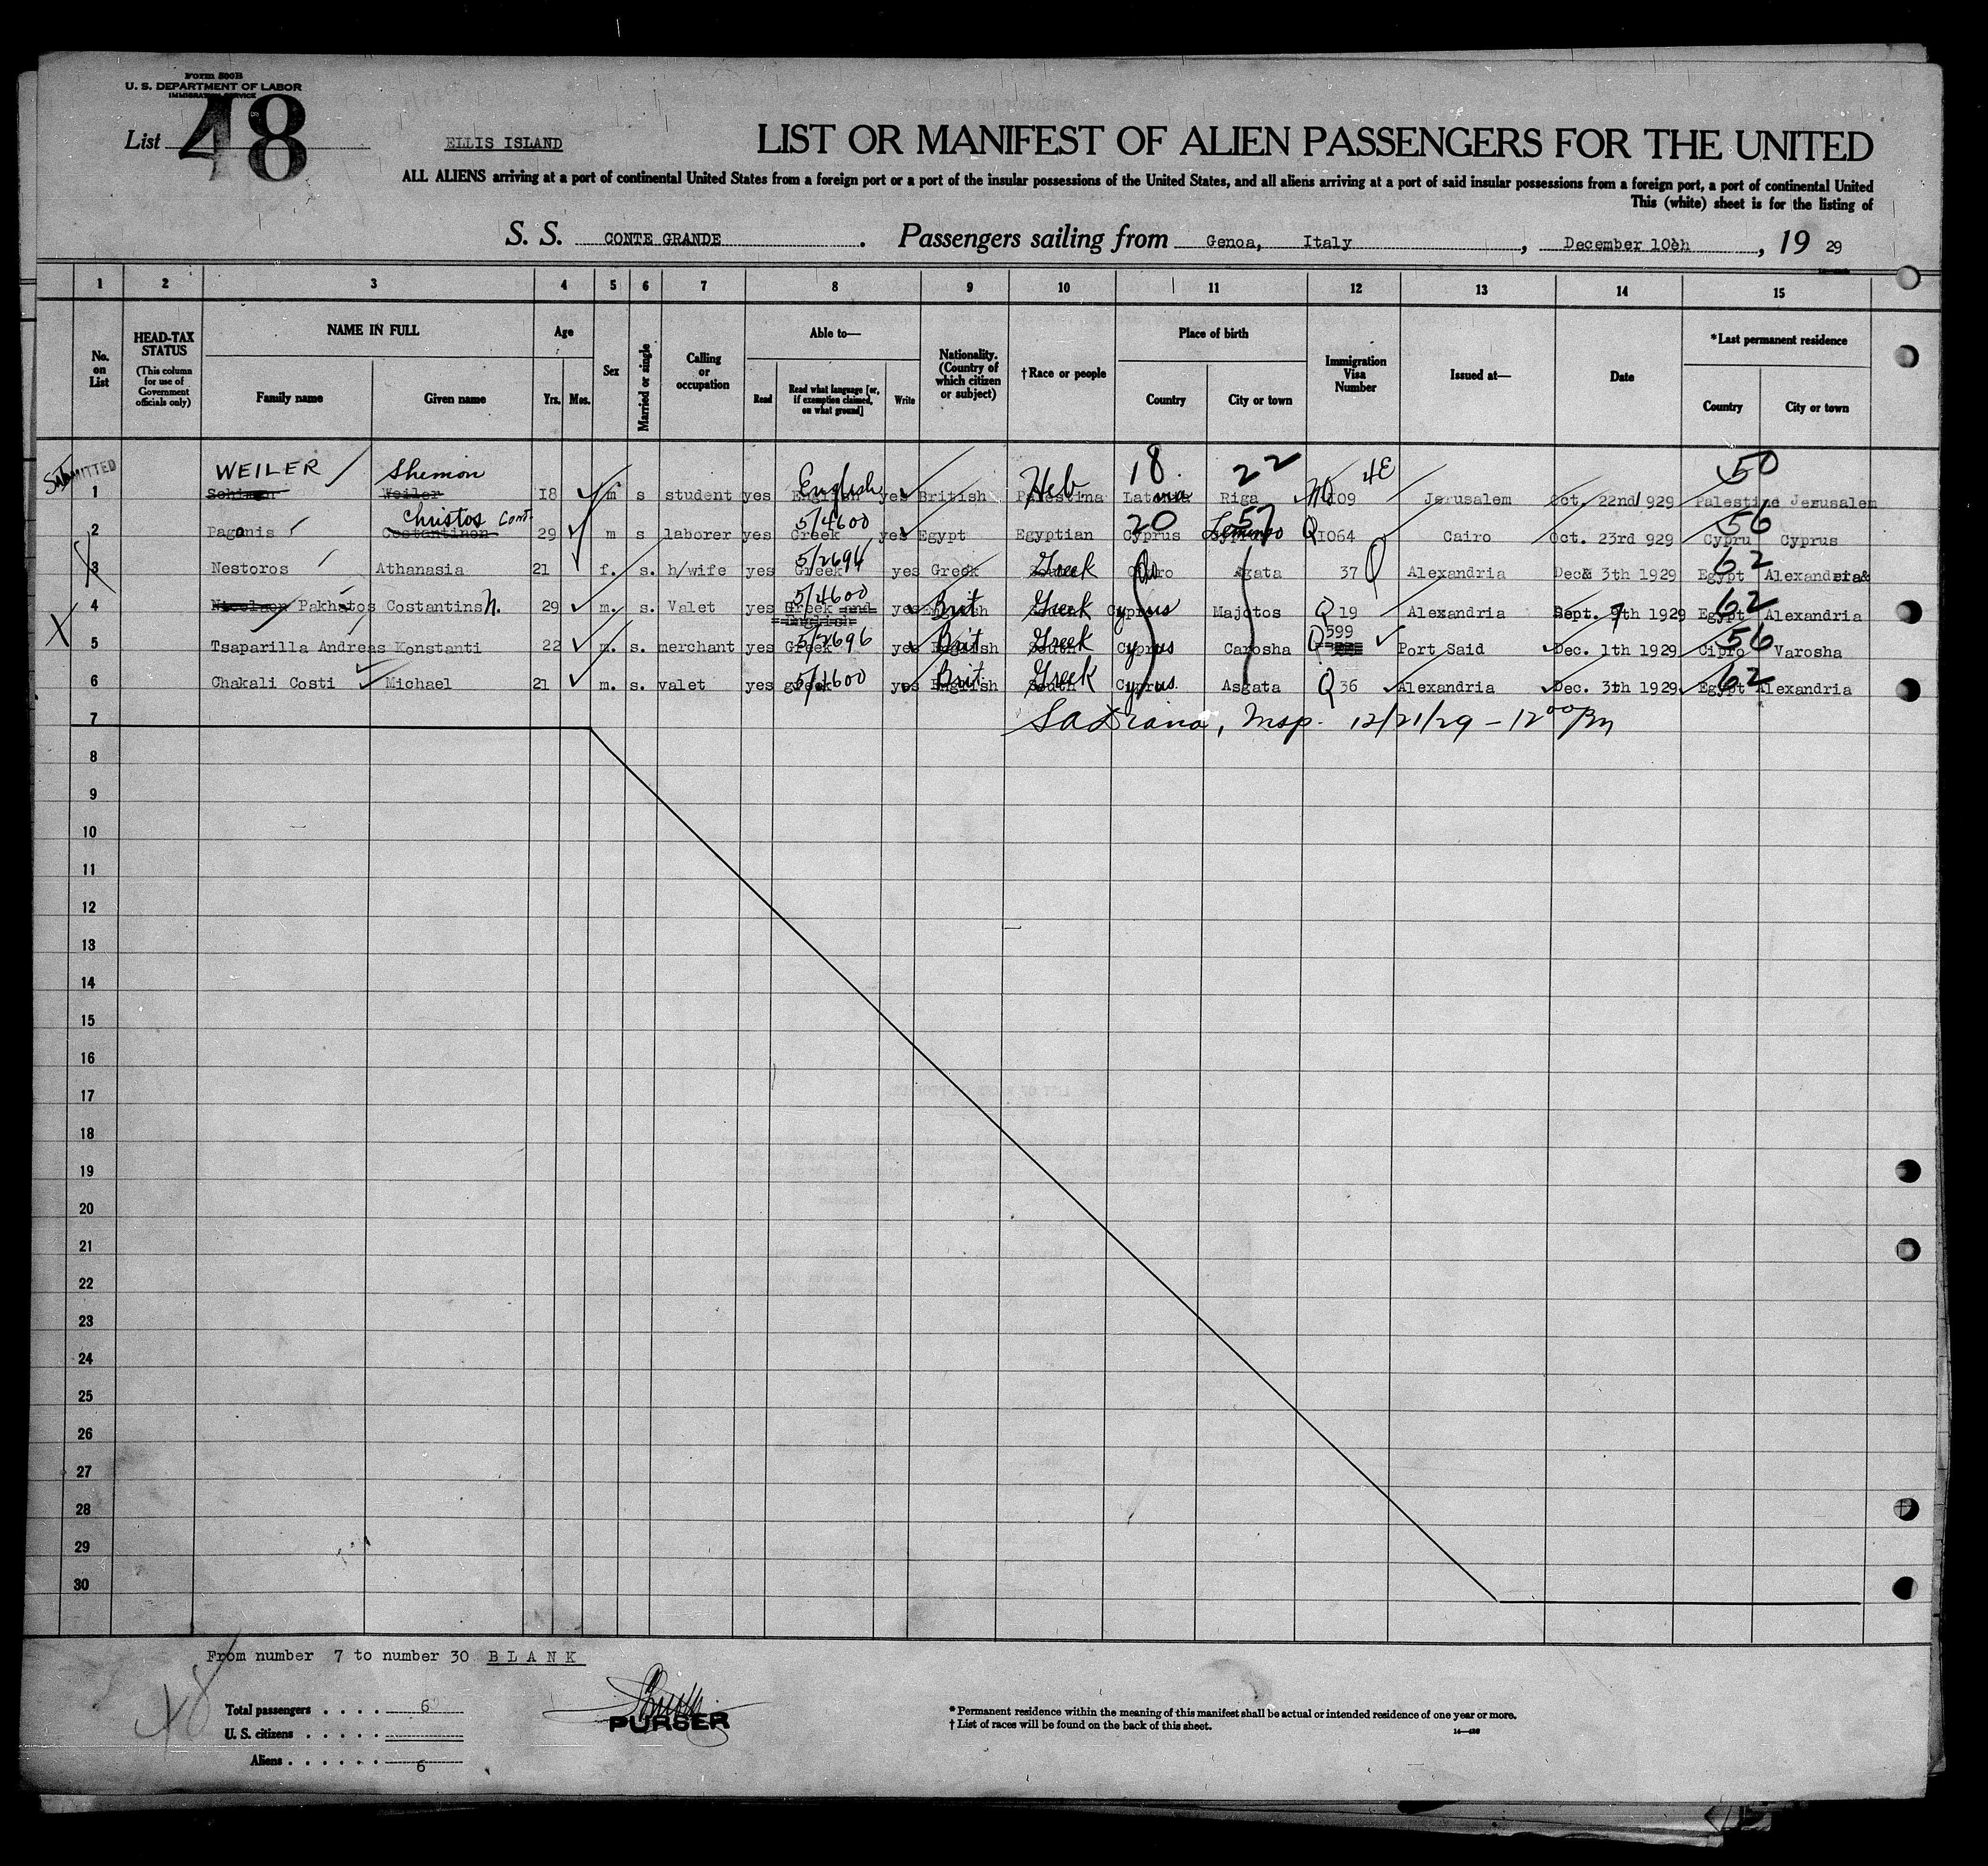 Form 500B
U. S. DEPARTMENT OF LABOR
IMMIGRATION SERVICE
List 48
ELLIS ISLAND
LIST OR MANIFEST OF ALIEN PASSENGERS FOR THE UNITED
ALL ALIENS arriving at a port of continental United States from a foreign port or a port of the insular possessions of the United States, and all aliens arriving at a port of said insular possessions from a foreign port, a port of continental United
This (white) sheet is for the listing of
S. S. CONTE GRANDE. Passengers sailing from Genoa, Italy, December 10th, 19 29
1 2 3 4 5 6 7 8 9 10 11 12 13 14 15
No. on List
HEAD-TAX STATUS (This column for use of Government officials only)
NAME IN FULL
Family name Given name
Age
Yrs. Mos.
Sex
Married or single
Calling or occupation
Able to—
Read Read what language [or, if exemption claimed, on what ground] Write
Nationality. (Country of which citizen or subject)
†Race or people
Place of birth
Country City or town
Immigration Visa Number
Issued at—
Date
*Last permanent residence
Country City or town
SUBMITTED
WEILER Shemon English Heb 18 22 4E 50
1 Weiler 18 m s student yes English yes British Palestina Riga 109 Jerusalem Oct. 22nd 1929 Palestine Jerusalem
Christos Cont. 5/4600 20 57 56
2 Paganis Costantinon 29 m s laborer yes Greek yes Egypt Egyptian Cyprus Q 1064 Cairo Oct. 23rd 929 Cypru Cyprus
5/2696 62
3 Nestoros Athanasia 21 f. s. h/wife yes Greek yes Greek Greek Agata 37 Q Alexandria Dec. 3th 1929 Egypt Alexandria
5/4600 62
4 Nicolaou Pakhatos Costantins N. 29 m. s. Valet yes Greek and English yes Brit Greek Cyprus Majotos Q 19 Alexandria Sept. 9th 1929 Egypt Alexandria
5/2696 599 56
5 Tsaparilla Andreas Konstanti 22 m. s. merchant yes Greek yes Brit Greek Cyprus Carosha Q Port Said Dec. 1th 1929 Cipro Varosha
5/4600 62
6 Chakali Costi Michael 21 m. s. valet yes greek yes Brit Greek Cyprus Asgata Q 36 Alexandria Dec. 3th 1929 Egypt Alexandria
7 Insp. 12/21/29 – 12 00 Pm
8
9
10
11
12
13
14
15
16
17
18
19
20
21
22
23
24
25
26
27
28
29
30
From number 7 to number 30 B L A N K
48
Total passengers . . . . 6
U. S. citizens . . . . .
Aliens . . . . . . 6
PURSER
* Permanent residence within the meaning of this manifest shall be actual or intended residence of one year or more.
† List of races will be found on the back of this sheet.